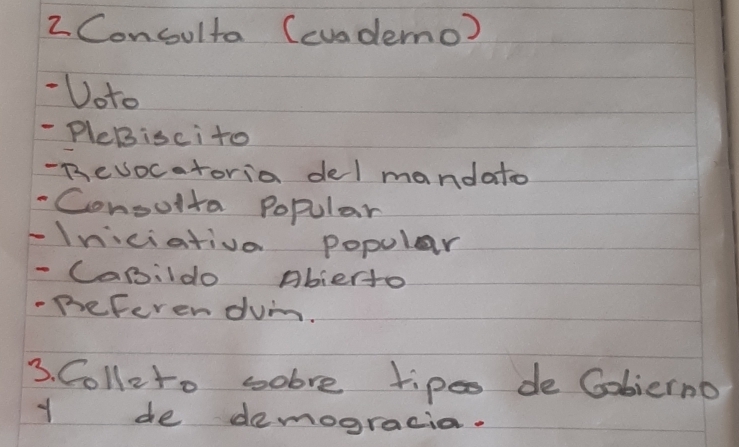 2 Consulta (cuaderno)
- Voto
- PleBiscito
- Revocatoria del mandato
- Consulta Popular
- Iniciativa popular
- CaBildo Abierto
- ReFerendum.
3. Folleto sobre tipos de Gobierno
Y de demogracia.